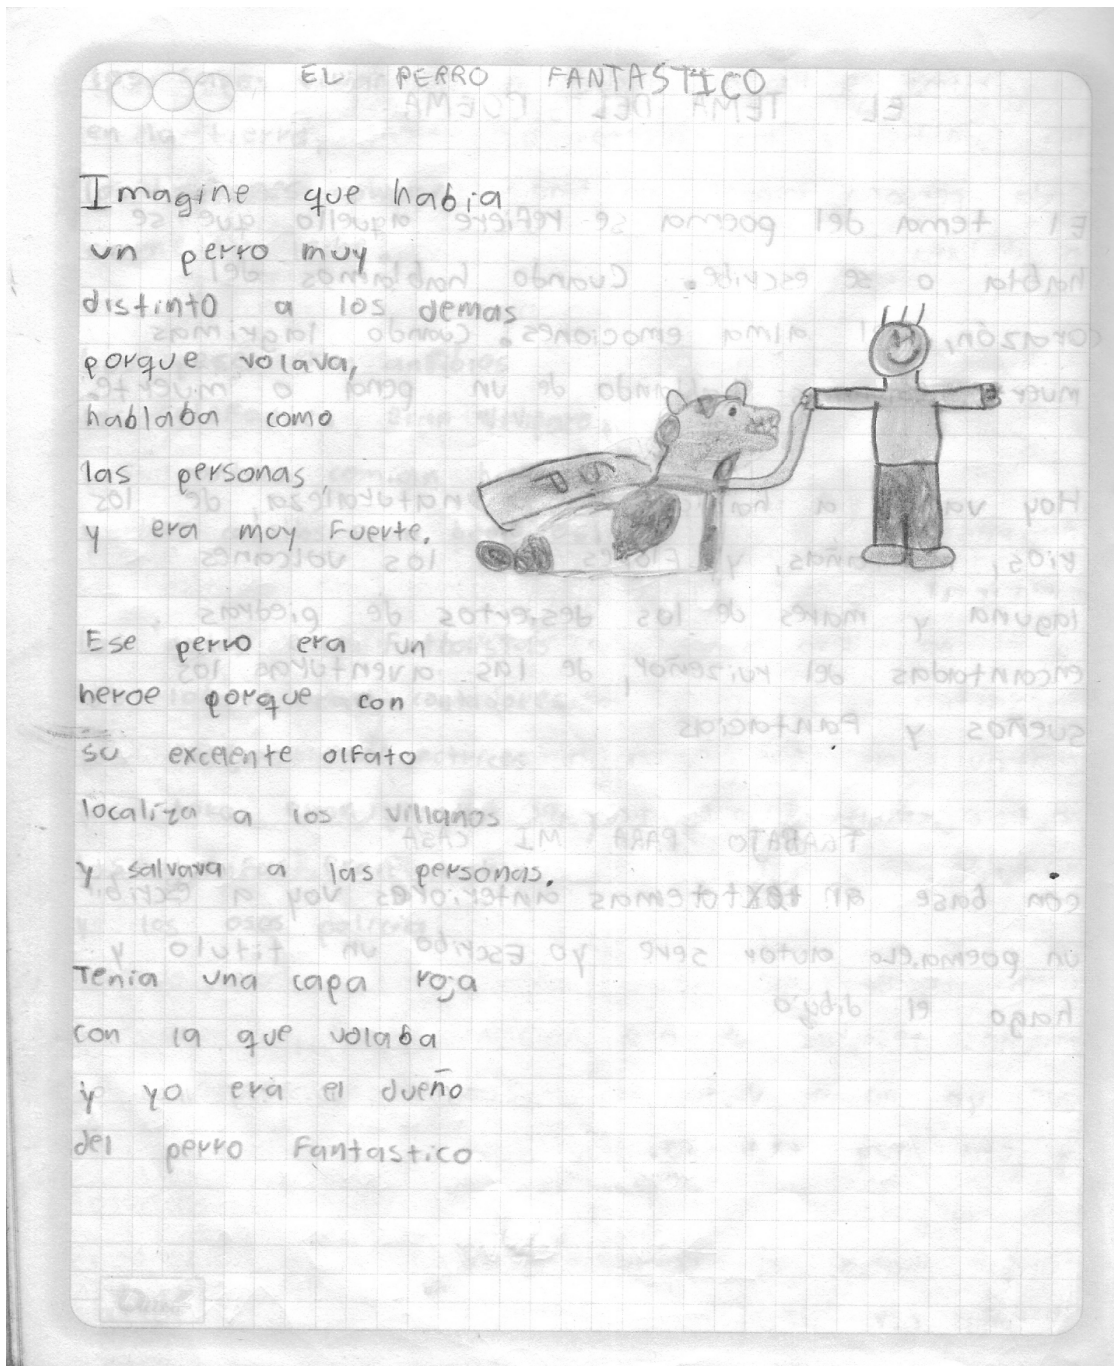 EL PERRO FANTASTICO
Imagine que habia
un perro muy
distinto a los demas
porque volava,
hablaba como
las personas
y era muy Fuerte.
Ese perro era un
heroe porque con
su excelente olfato
localiza a los villanos
y salvava a las personas.
Tenia una capa roja
con la que volaba
y yo era el dueño
del perro Fantastico